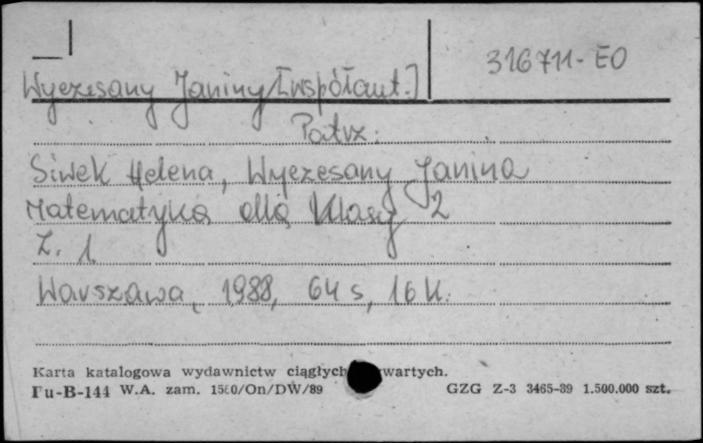 316711-EO
Wyczesany Janiny [współaut.]
Patrz:
Siwek Helena, Wyczesany Janina
Matematyka dla klasy 2
Z. 1
Warszawa, 1988, 64 s, 16 k.
Karta katalogowa wydawnictw ciągłych wartych.
Pu-B-144 W.A. zam. 1560/On/DW/89 GZG Z-3 3465-89 1.500.000 szt.